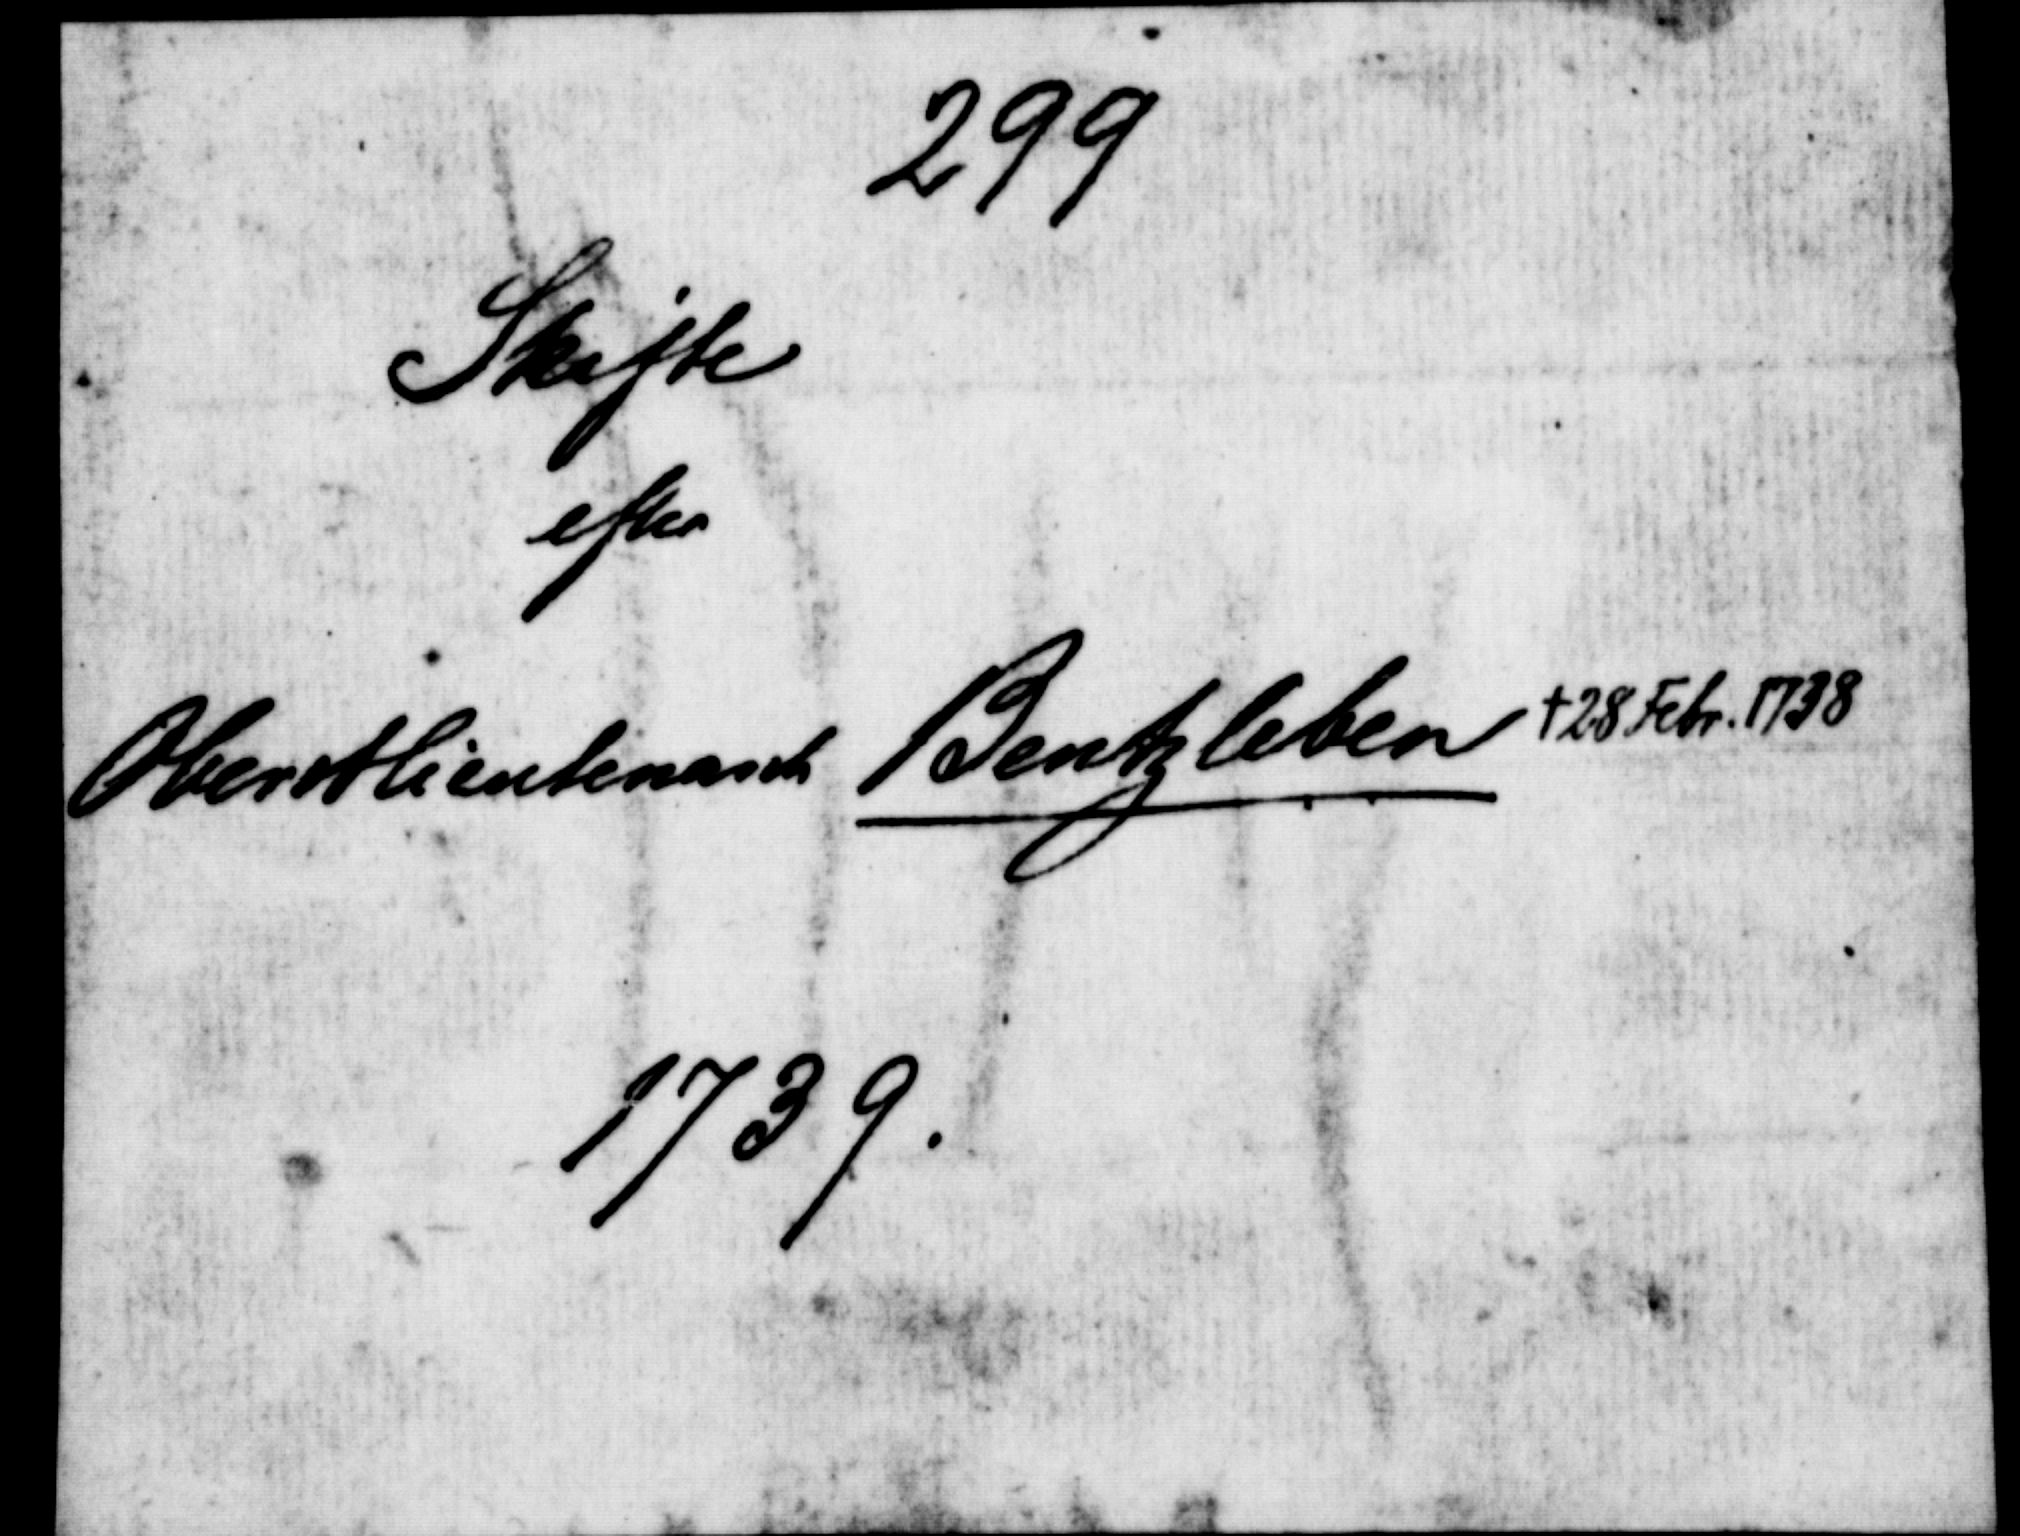 299
Skifte
efter
Oberstlieutenant Bentzleben † 28 Febr. 1738
1739.